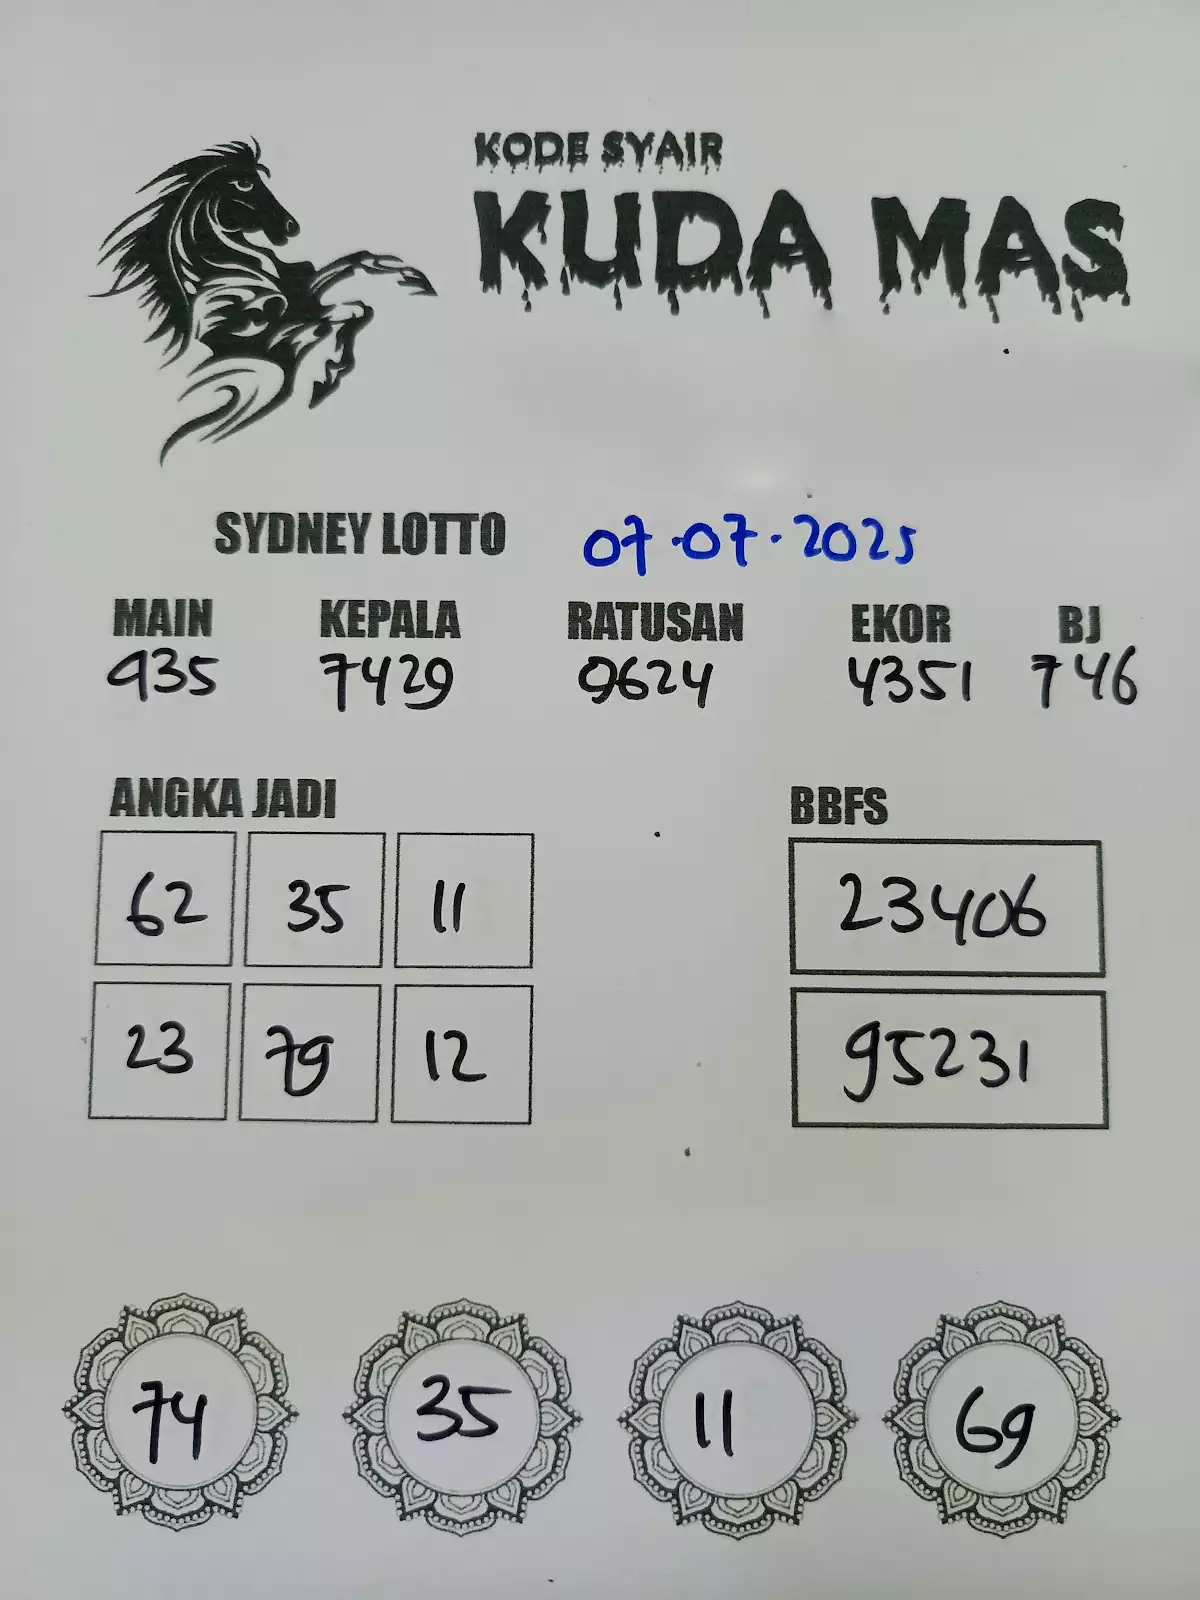 KODE SYAIR
KUDA MAS
SYDNEY LOTTO 07.07.2025
MAIN KEPALA RATUSAN EKOR BJ
935 7429 9624 4351 746
ANGKA JADI BBFS
62 35 11 23406
23 79 12 95231
74 35 11 69